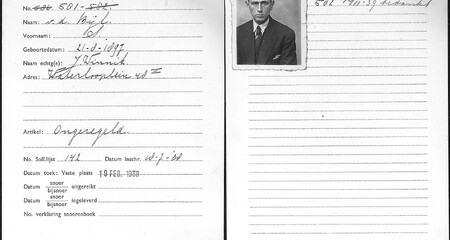 No. 501-
Naam: v.d. Bijl
Voornaam:
Geboortedatum: 21-8-1897
Naam echtg(e): J. Winnik
Adres: Waterlooplein III
Artikel: Ongeregeld.
No. Soll.lijst 142 Datum Inschr.
Datum toek: Vaste plaats 19 FEB. 1939
Datum snoer bijsnoer uitgereikt
Datum snoer bijsnoer ingeleverd
No. verklaring snoerenboek
502 1-11-39 bedankt